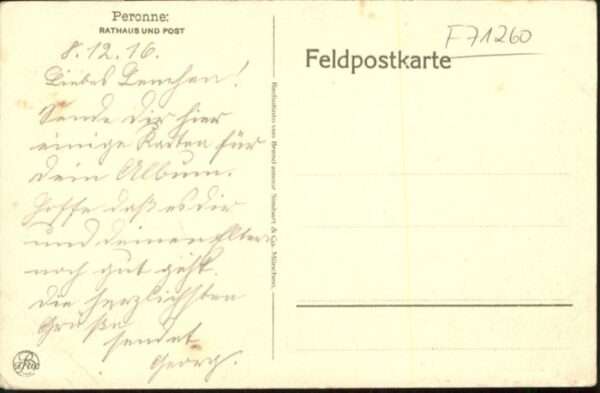 Peronne:
RATHAUS UND POST
8.12.16.
Liebes Lenchen!
Sende dir hier
einige Karten für
dein Album.
Hoffe daß es dir
und deinen Eltern
noch gut geht.
Die herzlichsten
Grüße
sendet
Georg.
Feldpostkarte
F71260